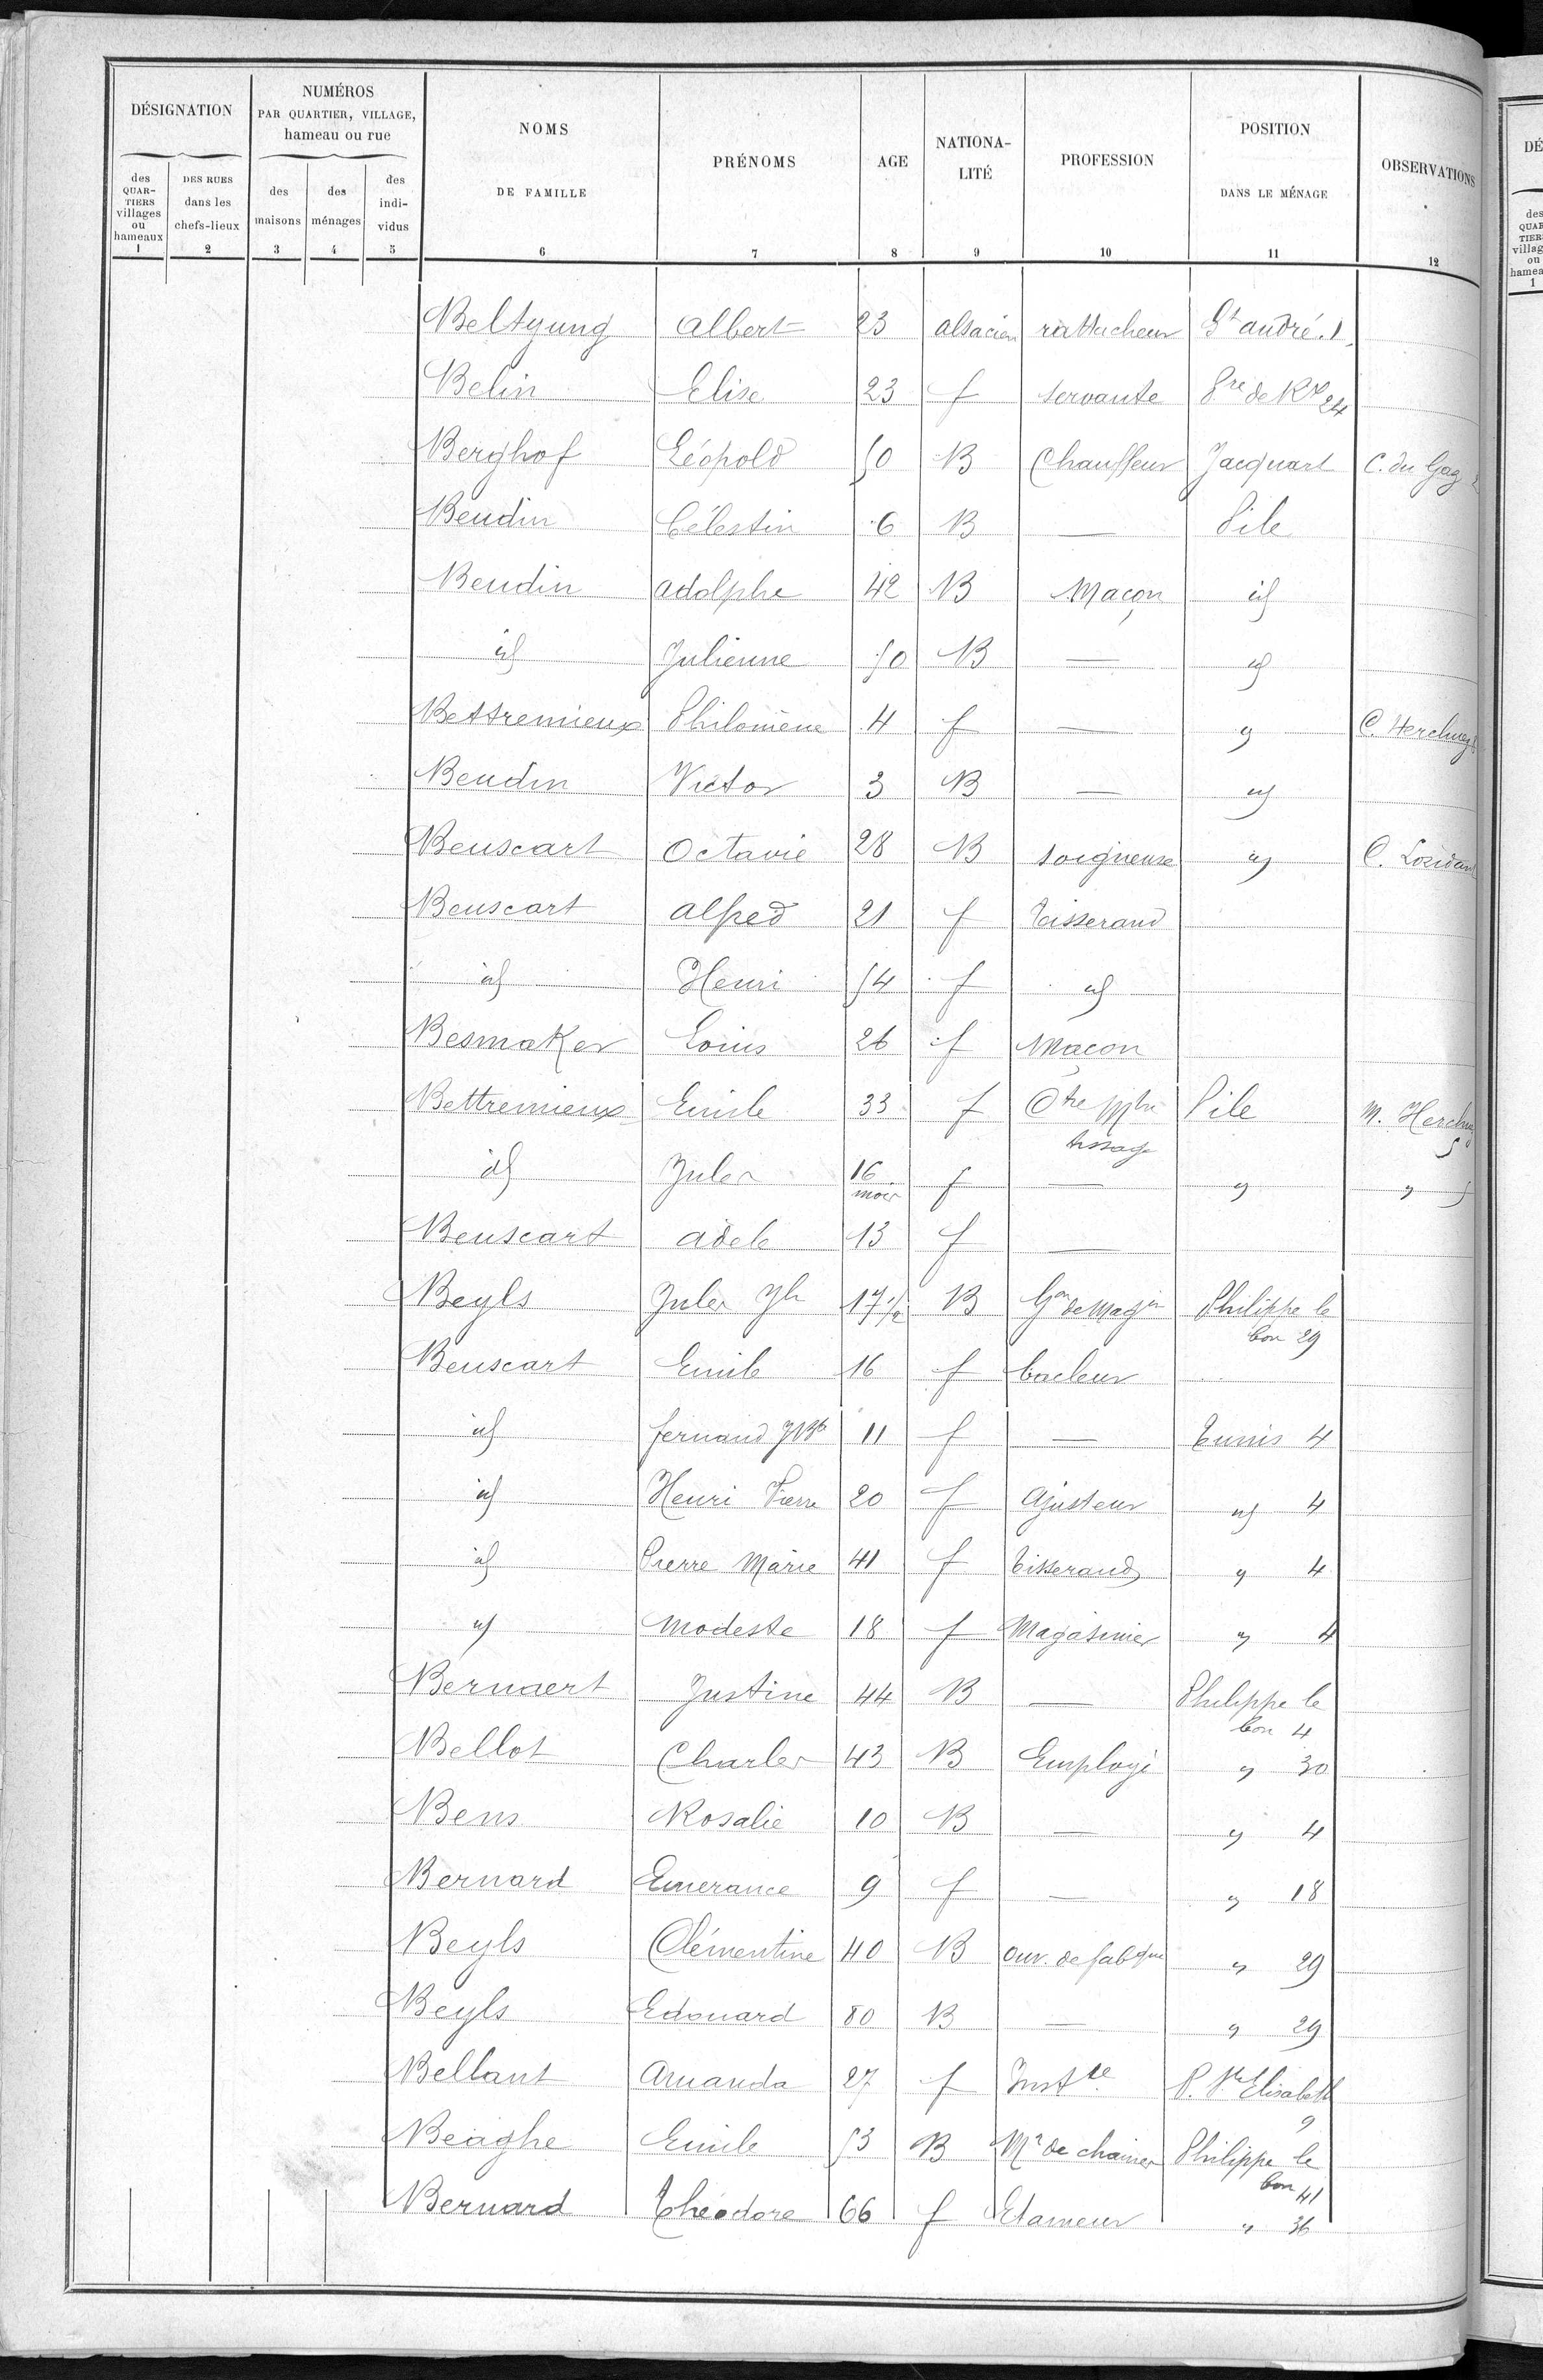 DÉSIGNATION
des QUARTIERS villages ou hameaux 1
DES RUES dans les chefs-lieux 2
NUMÉROS PAR QUARTIER, VILLAGE, hameau ou rue
des maisons 3
des ménages 4
des indi-vidus 5
NOMS DE FAMILLE 6
PRÉNOMS 7
AGE 8
NATIONA-LITÉ 9
PROFESSION 10
POSITION DANS LE MÉNAGE 11
OBSERVATIONS 12
Beltzung Albert 23 alsacien rattacheur St André 1
Belin Elise 23 f servante Gre de Rx 24
Berghof Léopold 50 B Chauffeur Jacquart C. du Gaz 2
Beudin Célestin 6 B — Pile
Beudin Adolphe 42 B Maçon id
id Julienne 50 B — id
Bettremieux Philomène 4 f — id C. Herchuez
Beudin Victor 3 B — id
Beuscart Octavie 28 B soigneuse id C. Loridan
Beuscart Alfred 21 f Tisserand
id Henri 54 f id
Besmaker Louis 26 f Maçon
Bettremieux Emile 33 f Ctre Mtre Pile M. Herchuez
tissage 5
id Jules 16 mois f — id " 5
Beuscart Adele 13 f —
Beyls Jules Jh 17 1/2 B Gon de Magin Philippe le
bon 29
Beuscart Emile 16 f bacleur
id fernand JBte 11 f — Tunis 4
id Henri Pierre 20 f Ajusteur id 4
id Pierre Marie 41 f Tisserand " 4
id Modeste 18 f Magasinier " 4
Bernaert Justine 44 B — Philippe le
bon 4
Bellot Charles 43 B Employé " 30
Bens Rosalie 10 B — " 4
Bernard Emerance 9 f — " 18
Beyls Clémentine 40 B ouv. de fabque " 29
Beyls Edouard 80 B — " 29
Bellant Amanda 27 f Instce P. Ste Elisabeth
9
Beaghe Emile 53 B Md de chaines Philippe le
bon 41
Bernard Théodore 66 f Etameur " 36